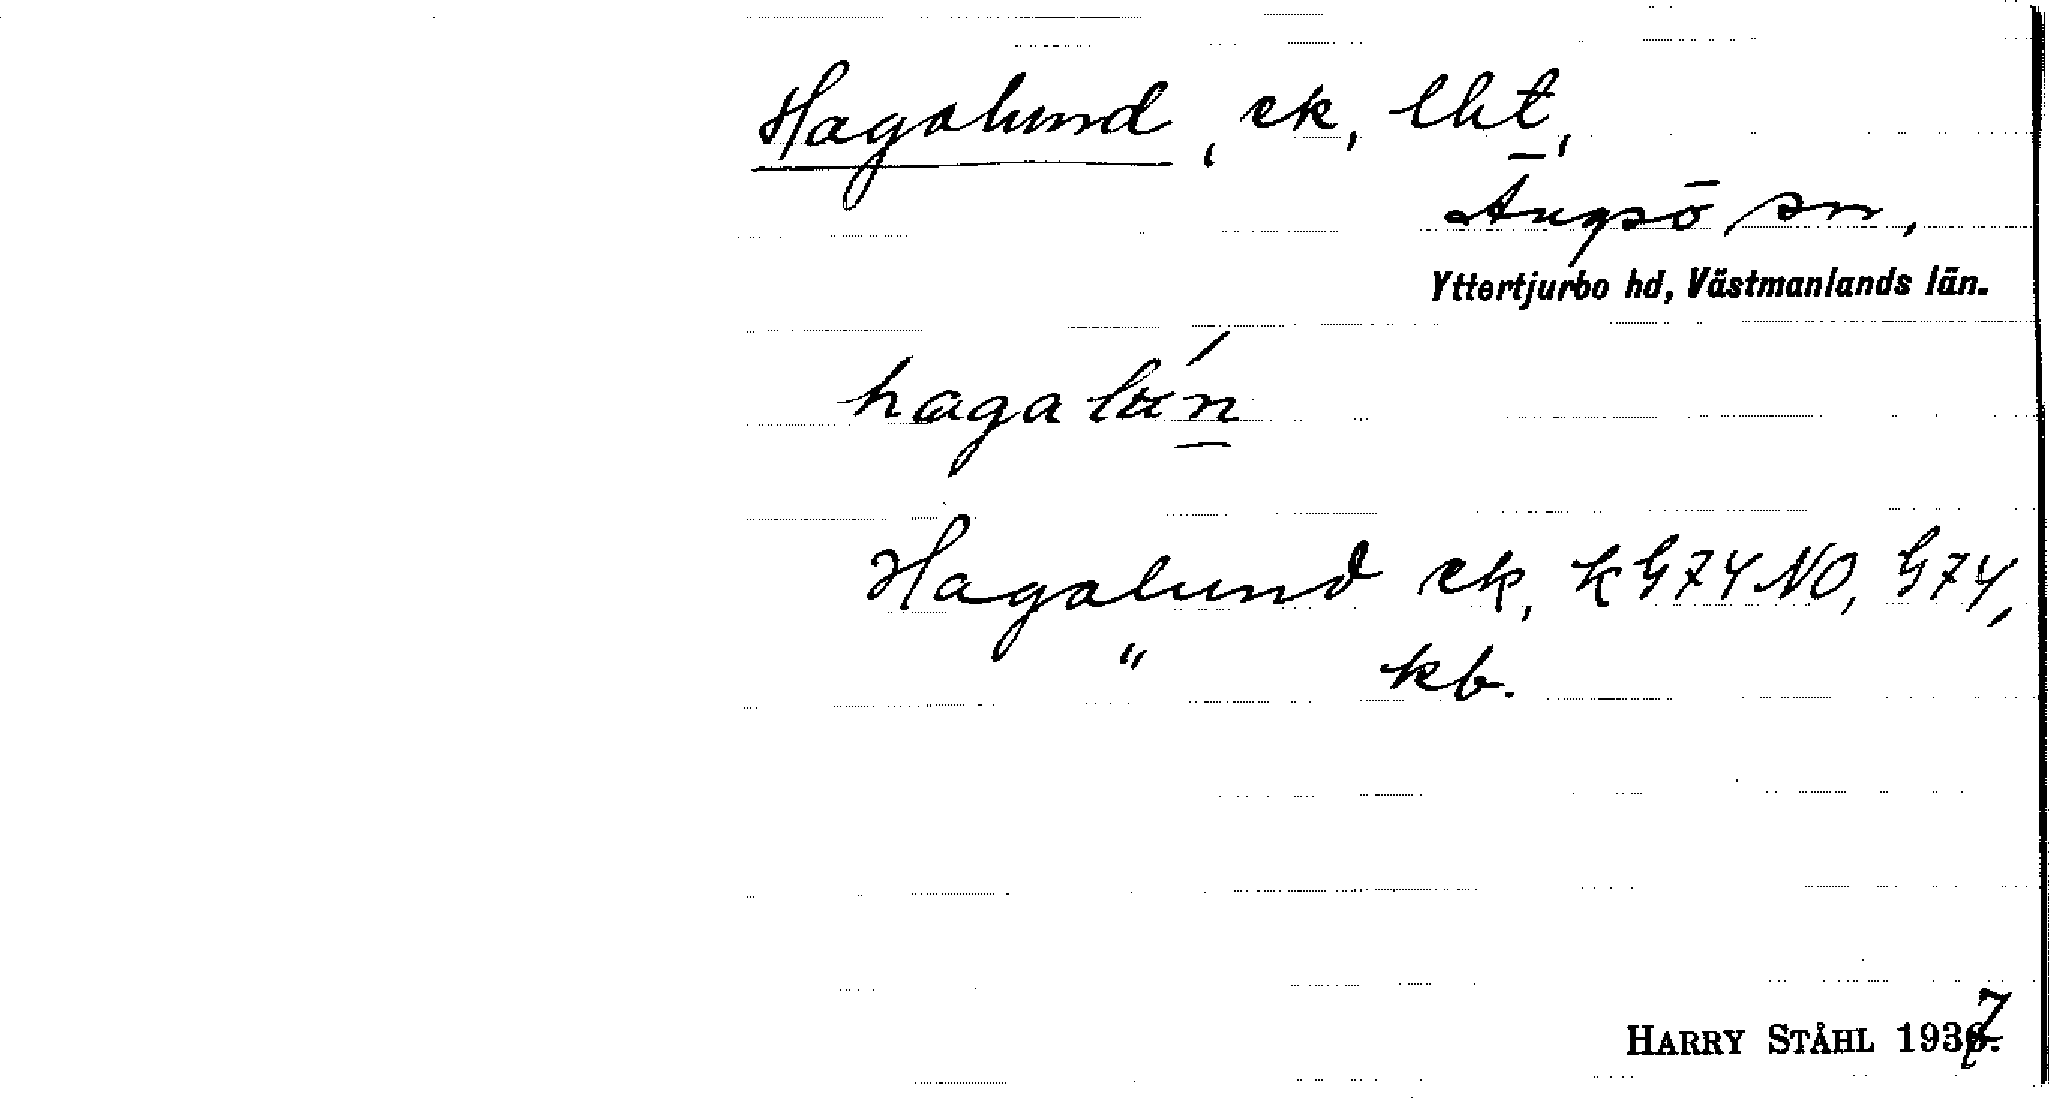 Hagalund, ek, lht,
Ängsö sn,
Yttertjurbo hd, Västmanlands län.
hagalún
Hagalund ek, k G74 NO, G74,
" kb.
HARRY STÅHL 1937